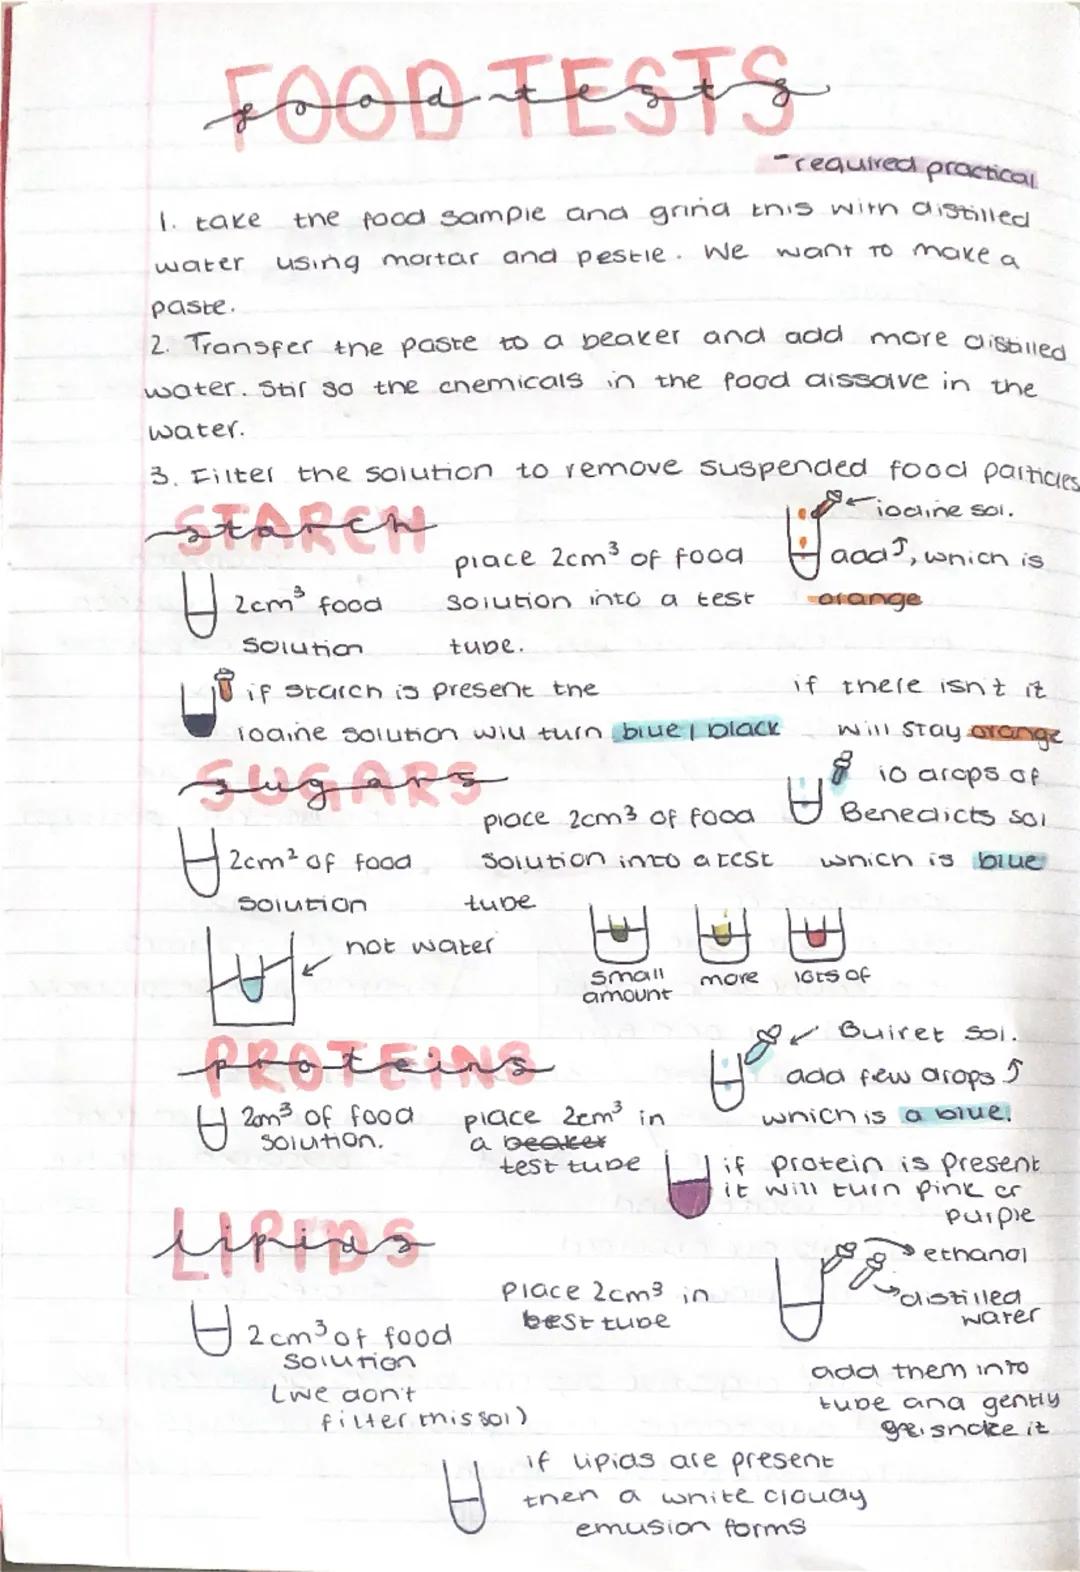 FOOD TESTS
food tests
- required practical
1. take the food sample and grind this with distilled
water using mortar and pestle. We want to make a
paste.
2. Transfer the paste to a beaker and add more distilled
water. Stir so the chemicals in the food dissolve in the
water.
3. Filter the solution to remove suspended food particles
STARCH
starch
iodine sol.
place 2cm³ of food
add ↑, which is
2cm³ food
solution into a test
orange
solution
tube.
if starch is present the
if there isn't it
iodine solution will turn blue / black
will stay orange
SUGARS
sugars
10 drops of
place 2cm3 of food
Benedicts sol
2cm² of food
solution into a test
which is blue
solution
tube
hot water
small
amount
more
lots of
PROTEINS
proteins
Buiret sol.
add few drops ↑
2m³ of food
solution.
place 2cm³ in
a beaker
test tube
which is a blue.
if protein is present
it will turn pink or
purple
LIPIDS
lipids
ethanol
distilled
water
place 2cm3 in
best tube
2cm³ of food
solution
(we don't
filter this sol)
add them into
tube and gently
shake it
if lipids are present
then a white cloudy
emusion forms